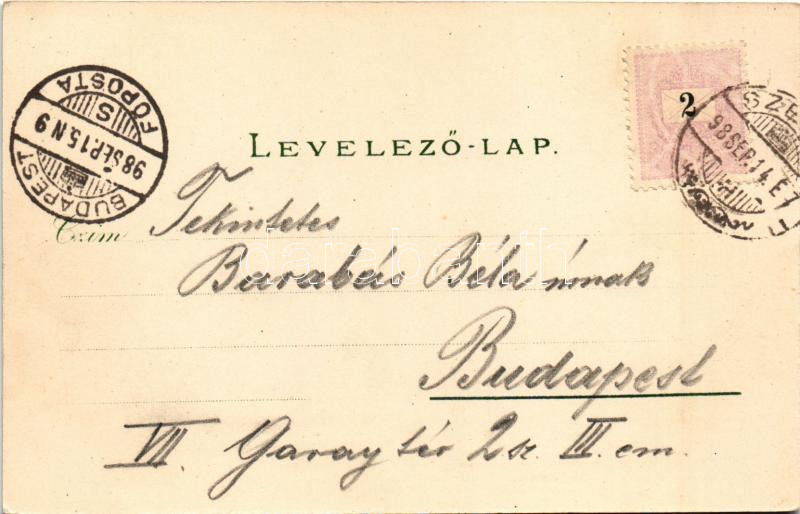 LEVELEZŐ-LAP.
2
BUDAPEST
98 SEP. 15. N 9
S
FŐPOSTA
98 SEP. 14. E 7
Czím
Tekintetes
Barabás Béla úrnak
Budapest
VII. Garay tér 2 sz. III. em.